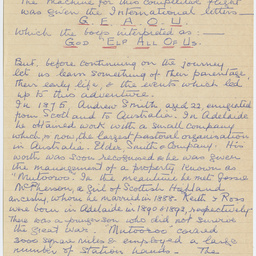 The machine for this competitive flight
was given the International letters
G E A O U
which the boys interpreted as :—
GOD 'ELP ALL OF US.
But, before continuing on the journey
let us learn something of their parentage,
their early life, & the events which led
up to this adventure.
In 1875 Andrew Smith aged 22 emigrated
from Scotland to Australia. In Adelaide
he obtained work with a small company
which is now the largest pastoral organisation
in Australia. Elder Smith & Company. His
worth was soon recognised & he was given
the management of a property known as
"Mutooroo". In the meantime he met Jessie
McPherson, a girl of Scottish Highland
ancestry, whom he married in 1888. Keith & Ross
were born in Adelaide in 1890 & 1892, respectively.
There was a younger son who did not survive
the Great War. "Mutooroo" covered
3000 square miles & employed a large
number of station hands. The